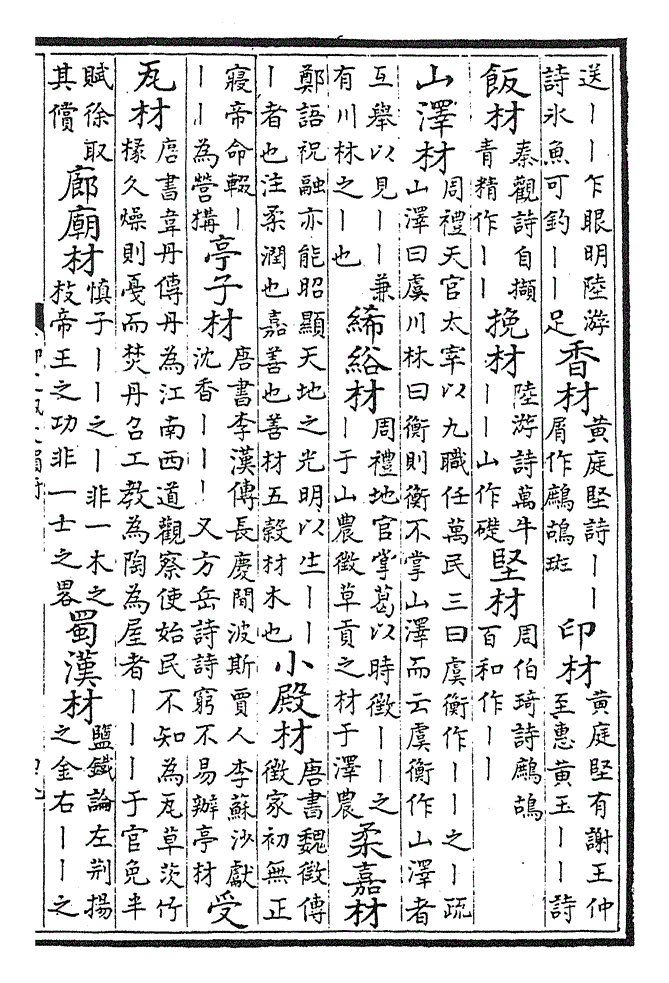 送丨丨乍眼明陸游
詩氷魚可釣丨丨足
香材
黃庭堅詩丨丨
屑作鷓鴣斑
印材
黃庭堅有謝王仲
至惠黃玉丨丨詩
飯材
秦觀詩自擷
青精作丨丨
挽材
陸游詩萬牛
丨丨山作礎
堅材
周伯琦詩鷓鴣
百和作丨丨
山澤材
周禮天官太宰以九職任萬民三曰虞衡作丨丨之丨疏
山澤曰虞川林曰衡則衡不掌山澤而云虞衡作山澤者
互舉以見丨丨兼
有川林之丨也
絺綌材
周禮地官掌葛以時徵丨丨之
丨于山農徵草貢之材于澤農
柔嘉材
鄭語祝融亦能昭顯天地之光明以生丨丨
丨者也注柔潤也嘉善也善材五穀材木也
小殿材
唐書魏徵傳
徵家初無正
寢帝命輟丨
丨丨為營構
亭子材
唐書李漢傳長慶間波斯賈人李蘇沙獻
沈香丨丨丨又方岳詩詩窮不易辦亭材
受
瓦材
唐書韋丹傳丹為江南西道觀察使始民不知為瓦草茨竹
椽久燥則戞而焚丹召工教為陶為屋者丨丨丨于官免半
賦徐取
其償
廊廟材
慎子丨丨之丨非一木之
枝帝王之功非一士之畧
蜀漢材
鹽鐵論左荆揚
之金右丨丨之